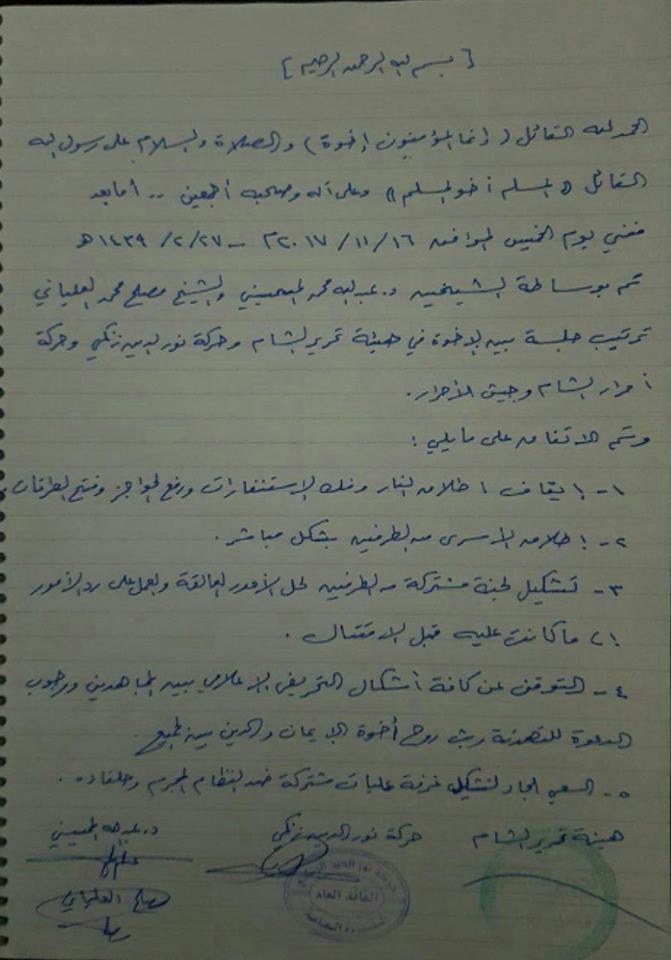 [ بسم الله الرحمن الرحيم ]
الحمد لله القائل (إنما المؤمنون إخوة) والصلاة والسلام على رسول الله
القائل «المسلم أخو المسلم» وعلى آله وصحبه أجمعين .. أما بعد
ففي يوم الخميس الموافق ١٦ / ١١ / ٢٠١٧م - ٢٧ / ٢ / ١٤٣٩ هـ
تم بوساطة الشيخين د. عبد الله محمد المحيسني والشيخ مصلح محمد العلياني
ترتيب جلسة بين الإخوة في هيئة تحرير الشام وحركة نور الدين زنكي وحركة
أحرار الشام وجيش الأحرار.
وتم الاتفاق على ما يلي :
١- إيقاف اطلاق النار وفك الاستنفارات ورفع الحواجز وفتح الطرقات.
٢- إطلاق الأسرى من الطرفين بشكل مباشر.
٣- تشكيل لجنة مشتركة من الطرفين لحل الأمور العالقة والعمل على رد الأمور
إلى ما كانت عليه قبل الاقتتال .
٤- التوقف عن كافة أشكال التحريض الإعلامي بين المجاهدين ووجوب
الدعوة للتهدئة وبث روح أخوة الإيمان والدين بين الجميع.
٥- السعي الجاد لتشكيل غرفة عمليات مشتركة ضد النظام المجرم وحلفاءه.
هيئة تحرير الشام حركة نور الدين زنكي د. عبد الله المحيسني
مصلح العلياني
القائد العام